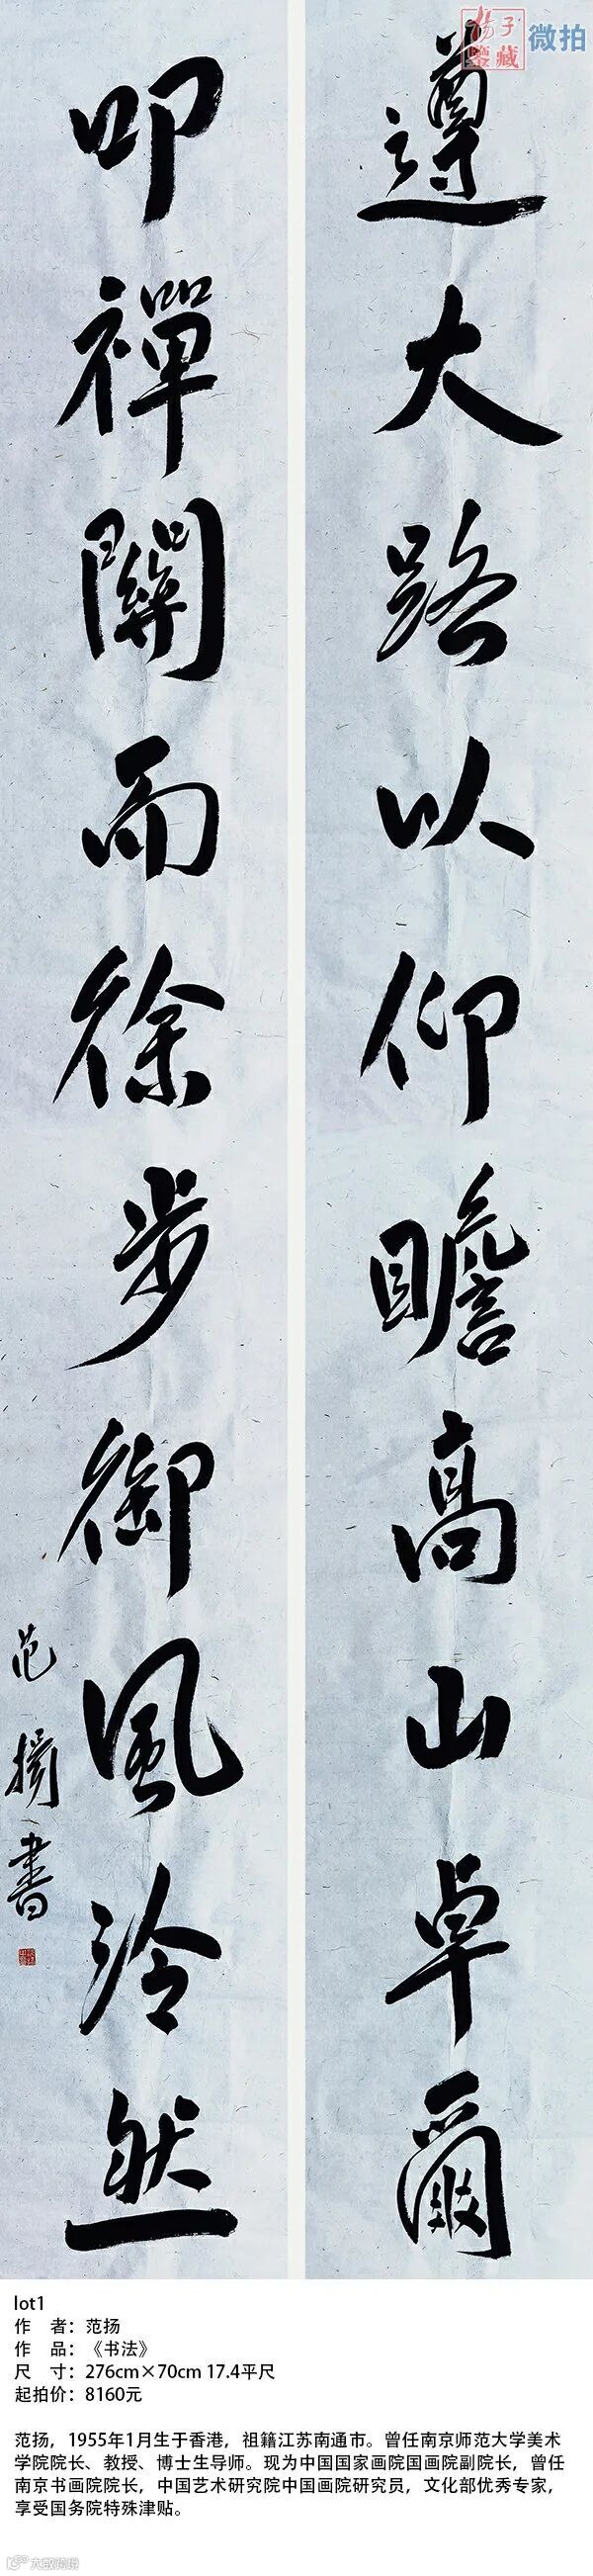 揚子
鑒藏
微拍
遵大路以仰瞻高山卓爾
叩禪關而徐步御風泠然
范揚書
lot1
作 者：范扬
作 品：《书法》
尺 寸：276cm×70cm 17.4平尺
起拍价：8160元
范扬，1955年1月生于香港，祖籍江苏南通市。曾任南京师范大学美术
学院院长、教授、博士生导师。现为中国国家画院国画院副院长，曾任
南京书画院院长，中国艺术研究院中国画院研究员，文化部优秀专家，
享受国务院特殊津贴。
大数跨境